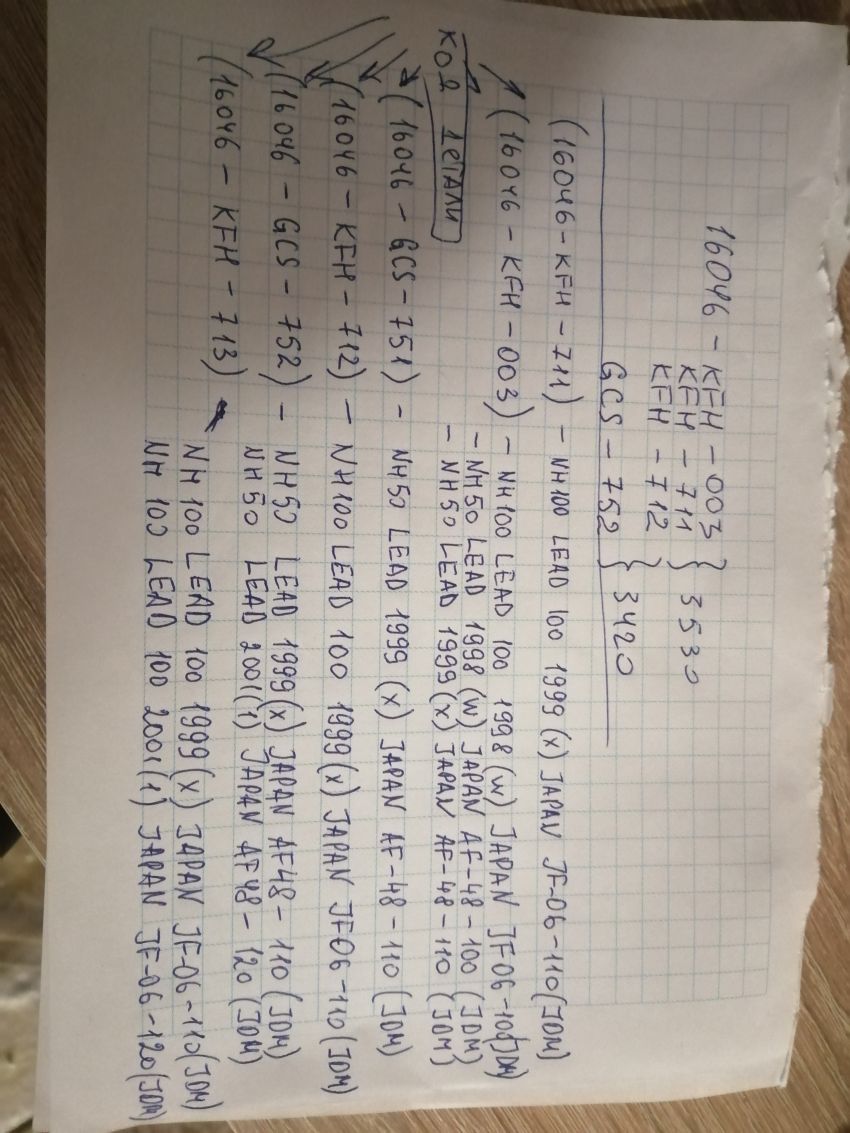 16046 - KFH - 003 }
KFH - 711 } 3530
KFH - 712 }
GCS - 752 } 3420
(16046 - KFH - 711) - NH100 LEAD 100 1999 (X) JAPAN JF-06-110 (JDM)
(16046 - KFH - 003) - NH100 LEAD 100 1998 (W) JAPAN JF06-100 (JDM)
- NH50 LEAD 1998 (W) JAPAN AF-48-100 (JDM)
КОД ДЕТАЛИ - NH50 LEAD 1999 (X) JAPAN AF-48-110 (JDM)
(16046 - GCS - 751) - NH50 LEAD 1999 (X) JAPAN AF-48-110 (JDM)
(16046 - KFH - 712) - NH100 LEAD 100 1999 (X) JAPAN JF06-110 (JDM)
(16046 - GCS - 752) - NH50 LEAD 1999 (X) JAPAN AF48-110 (JDM)
NH50 LEAD 2001 (1) JAPAN AF48-120 (JDM)
(16046 - KFH - 713) NH100 LEAD 100 1999 (X) JAPAN JF-06-110 (JDM)
NH100 LEAD 100 2001 (1) JAPAN JF-06-120 (JDM)